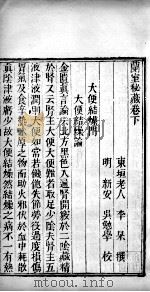 蘭室秘藏卷下
東垣老人 李杲 撰
明 新安 吳勉學 校
大便結燥門
大便結燥論
金匱真言論云北方黑色入通腎開竅於二陰藏精
於腎又云腎主大便大便難者取足少陰夫腎主五
液津液潤則大便如常若饑飽失節勞役過度損傷
胃氣及食辛熱味厚之物而助火邪伏於血中耗散
真陰津液虧少故大便結燥然結燥之病不一有熱